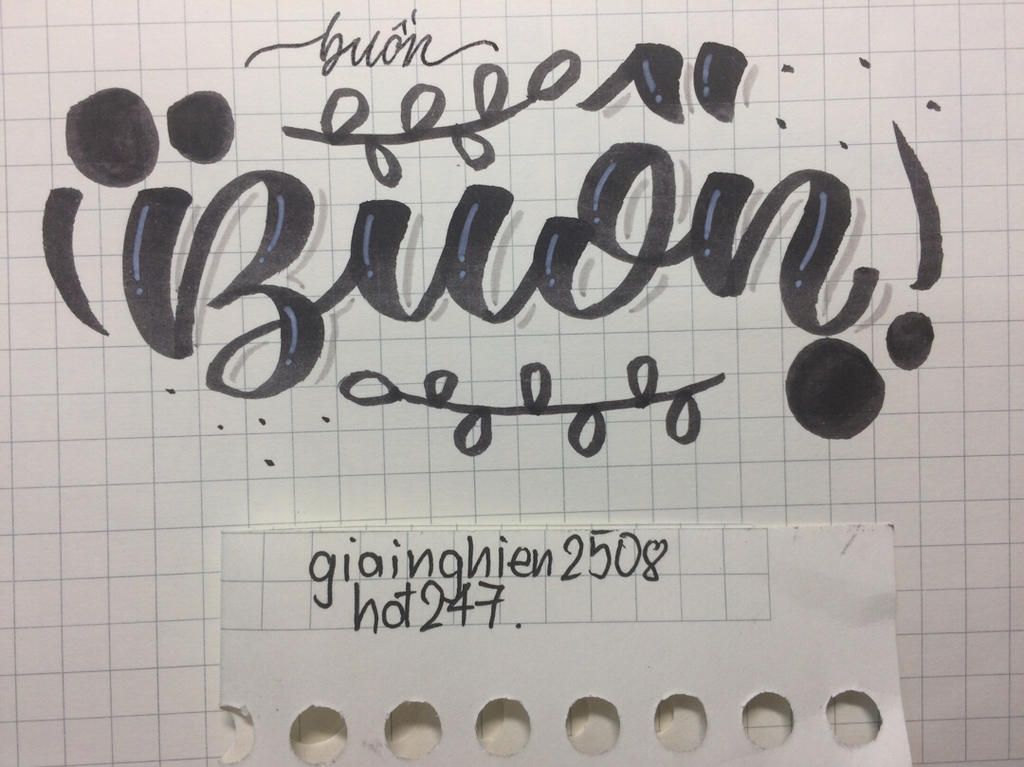 buồn
Buồn
giainghien2508
hot247.